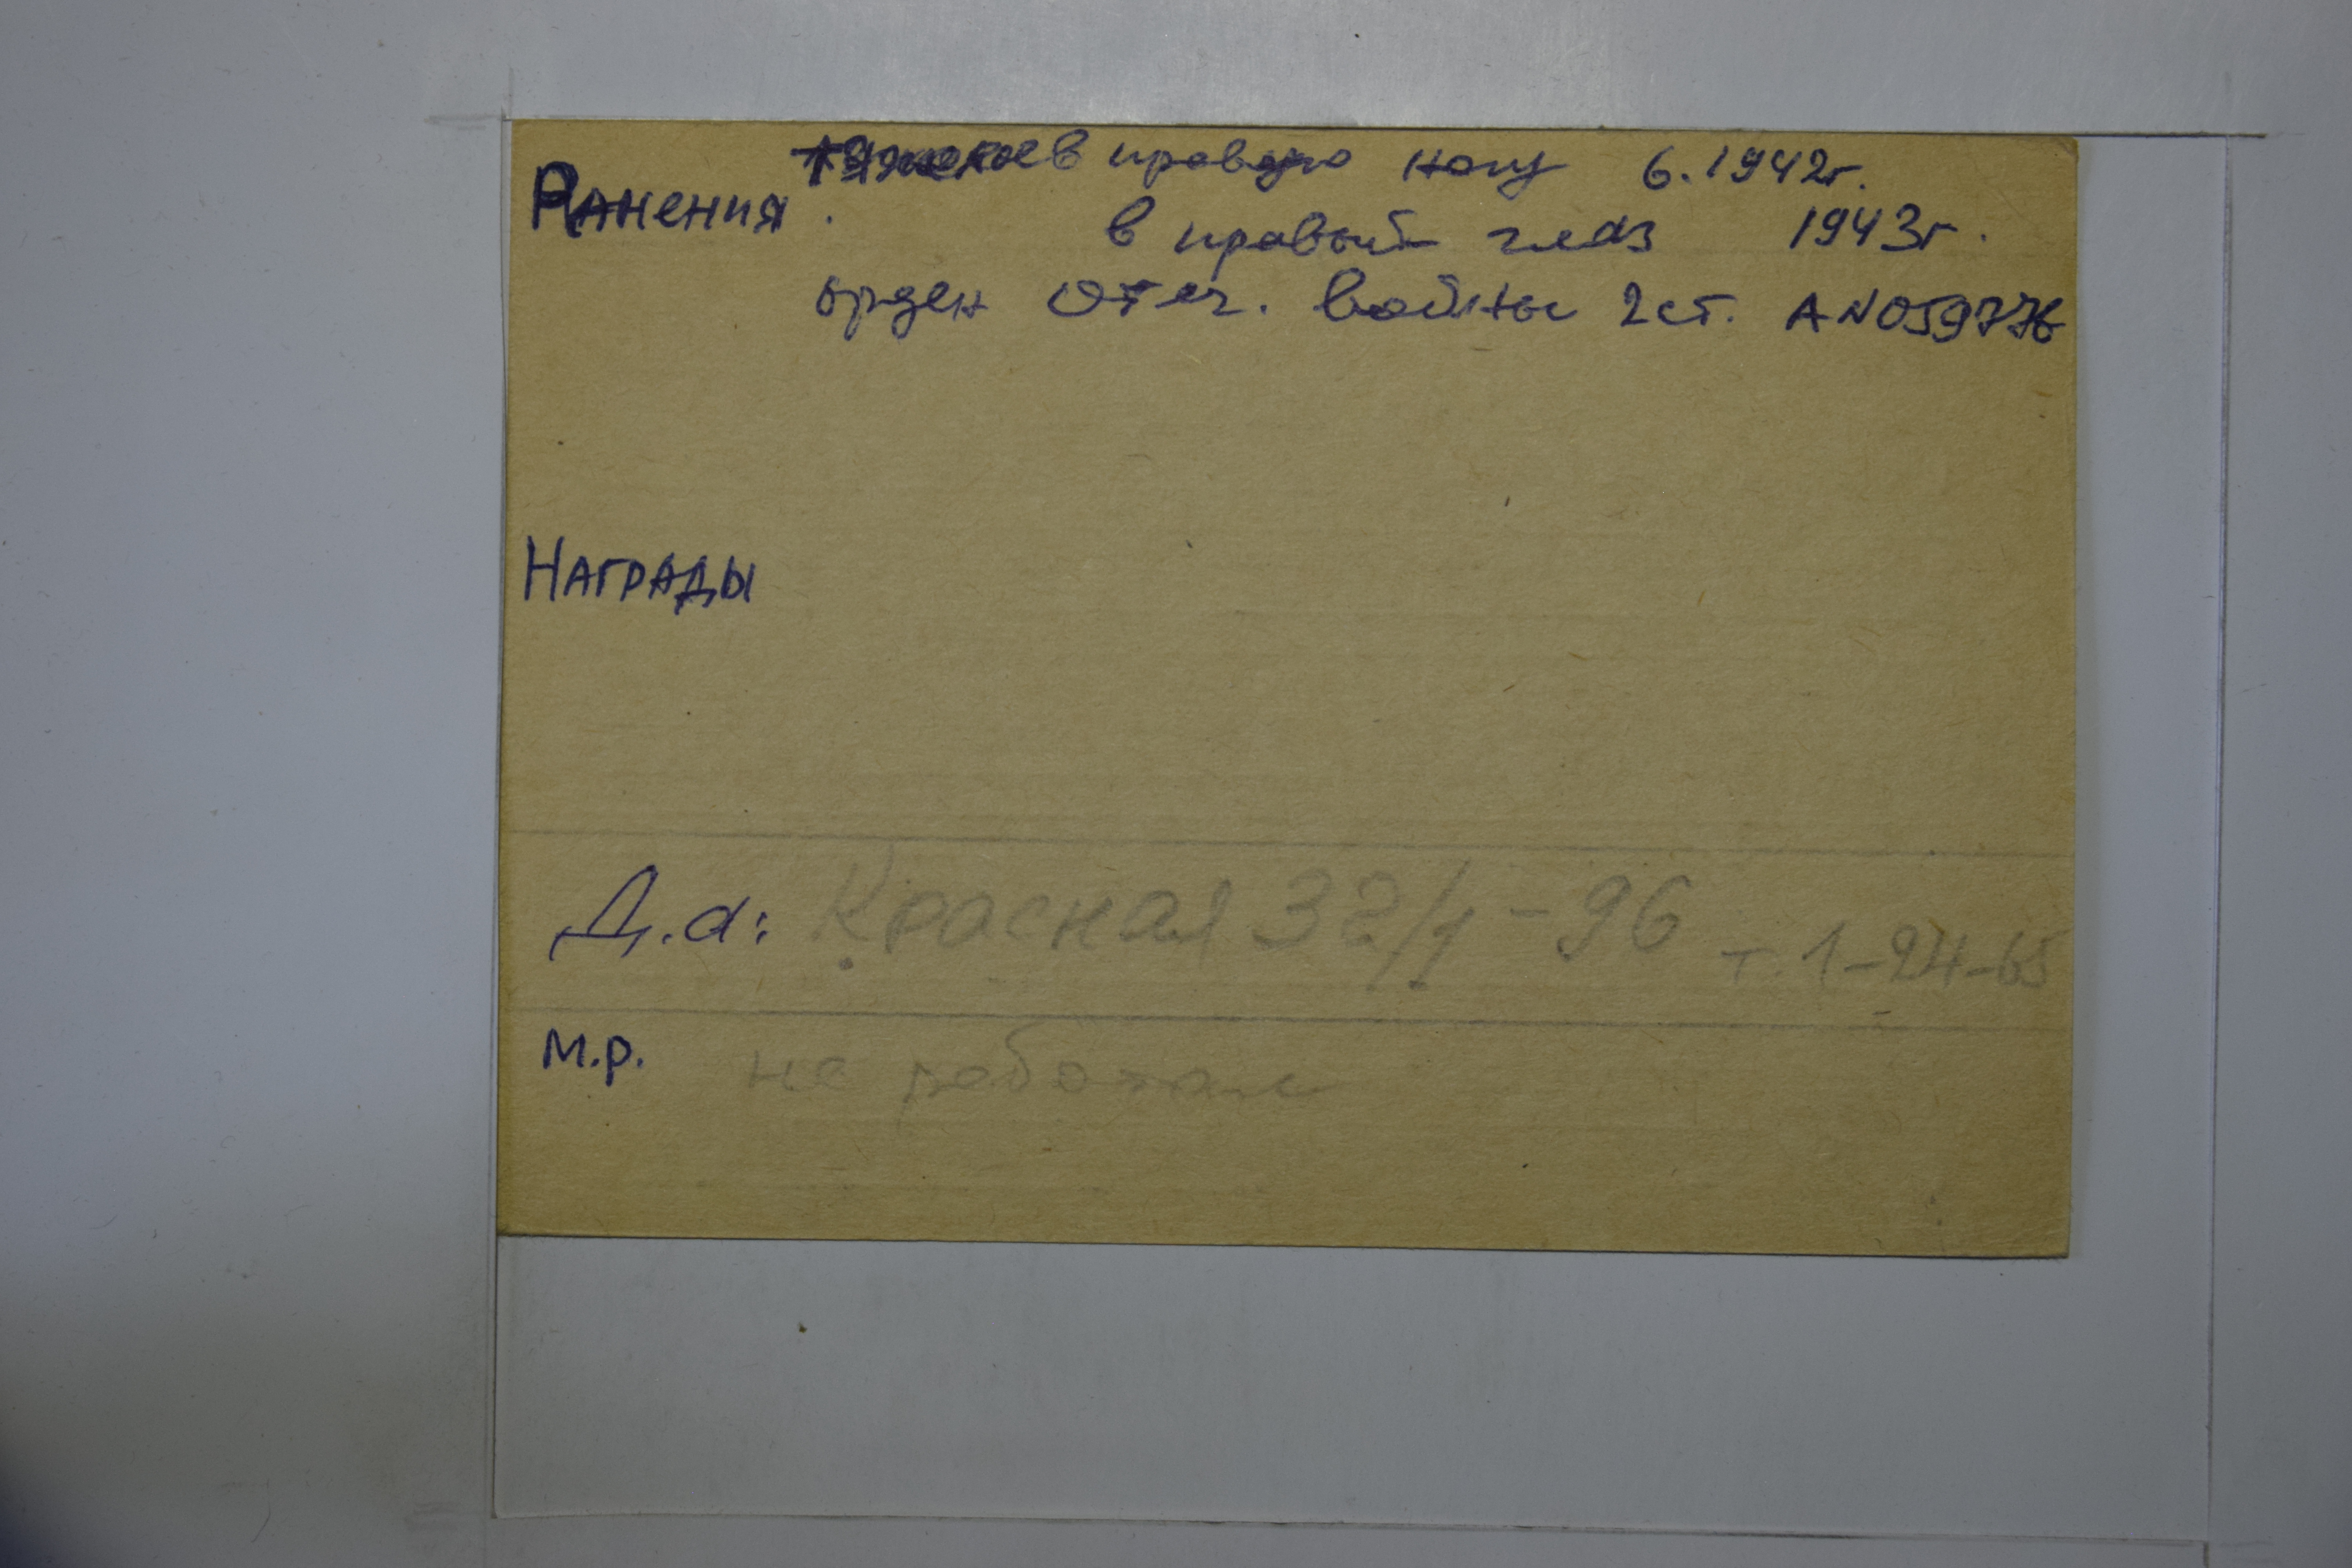 Ранения тяжелое в правую ногу 6.1942г.
в правый глаз 1943г.
орден Отеч. войны 2 ст. А№059776
Награды
Д.а: Красная 32/1-96 т. 1-24-65
м.р. не работает